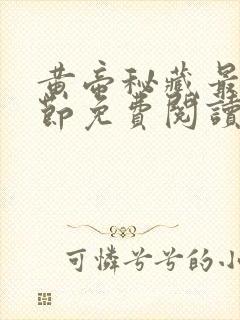 黄帝秘藏最
節免費閱讀
可憐兮兮的小